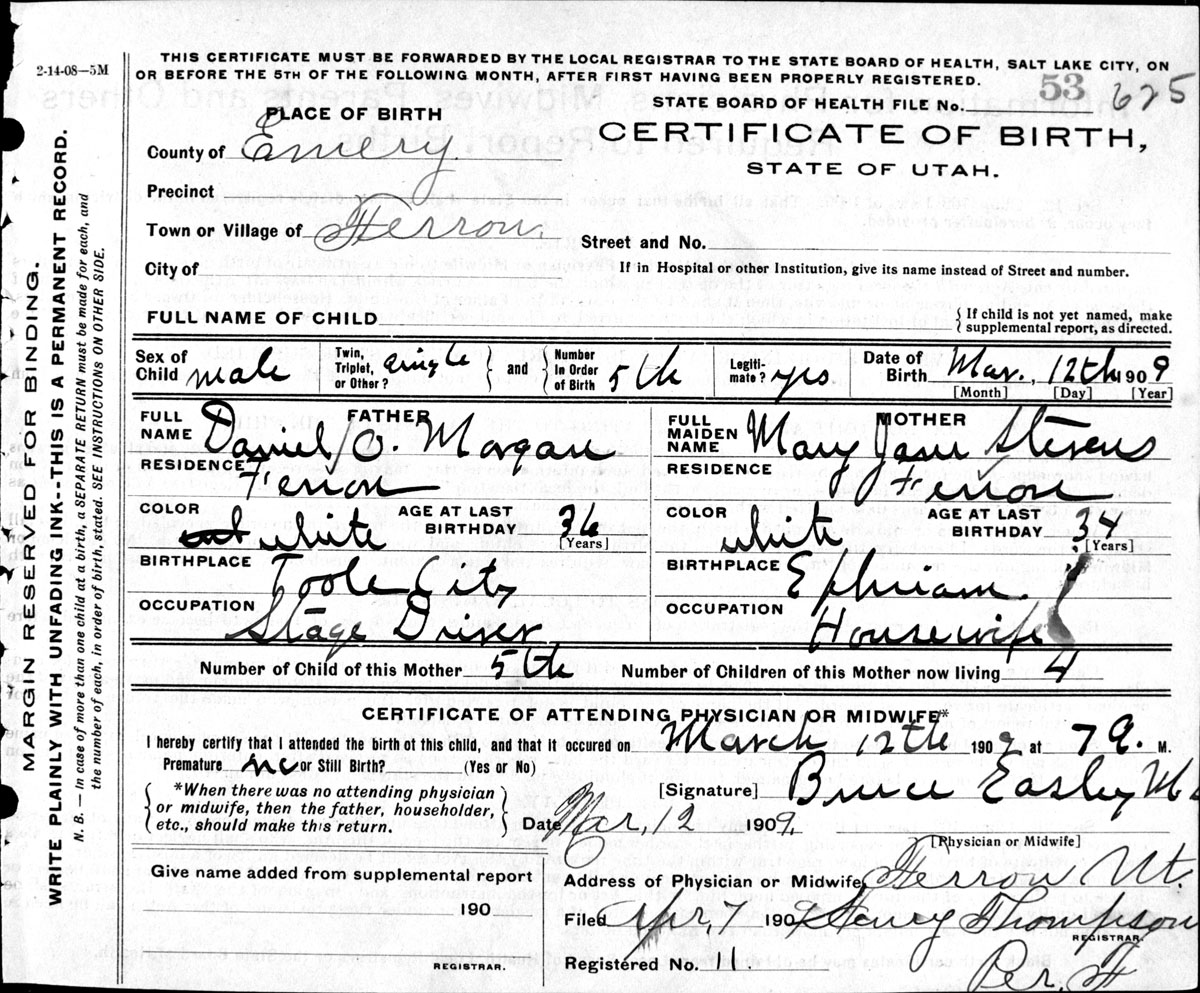 2-14-08—5M
THIS CERTIFICATE MUST BE FORWARDED BY THE LOCAL REGISTRAR TO THE STATE BOARD OF HEALTH, SALT LAKE CITY, ON
OR BEFORE THE 5TH OF THE FOLLOWING MONTH, AFTER FIRST HAVING BEEN PROPERLY REGISTERED.
STATE BOARD OF HEALTH FILE No. 53 625
PLACE OF BIRTH
CERTIFICATE OF BIRTH,
STATE OF UTAH.
County of Emery.
Precinct
Town or Village of Ferron.
Street and No.
City of
If in Hospital or other Institution, give its name instead of Street and number.
FULL NAME OF CHILD
{ If child is not yet named, make
supplemental report, as directed.
Sex of Child male
Twin, Triplet, or Other? single } and { Number In Order of Birth 5th
Legiti-mate? yes
Date of Birth Mar., 12th 1909
[Month] [Day] [Year]
FATHER
FULL NAME Daniel O. Morgan
RESIDENCE Ferron
COLOR white AGE AT LAST BIRTHDAY 36
[Years]
BIRTHPLACE Toole City
OCCUPATION Stage Driver
MOTHER
FULL MAIDEN NAME Mary Jane Stevens
RESIDENCE Ferron
COLOR white AGE AT LAST BIRTHDAY 34
[Years]
BIRTHPLACE Ephriam.
OCCUPATION Housewife
Number of Child of this Mother 5th Number of Children of this Mother now living 4
CERTIFICATE OF ATTENDING PHYSICIAN OR MIDWIFE*
I hereby certify that I attended the birth ot this child, and that it occured on March 12th 1909 at 7 a. M.
Premature no or Still Birth? (Yes or No)
{ *When there was no attending physician
or midwife, then the father, householder,
etc., should make this return. }
[Signature] Bruce Easley M
Date Mar, 12 1909.
[Physician or Midwife]
Give name added from supplemental report
190
REGISTRAR.
Address of Physician or Midwife, Ferron Ut.
Filed Apr, 7 1909 Henry Thompson
REGISTRAR.
Registered No. 11. Per. F
MARGIN RESERVED FOR BINDING.
WRITE PLAINLY WITH UNFADING INK--THIS IS A PERMANENT RECORD.
N. B. — In case of more than one child at a birth, a SEPARATE RETURN must be made for each, and
the number of each, in order of birth, stated. SEE INSTRUCTIONS ON OTHER SIDE.